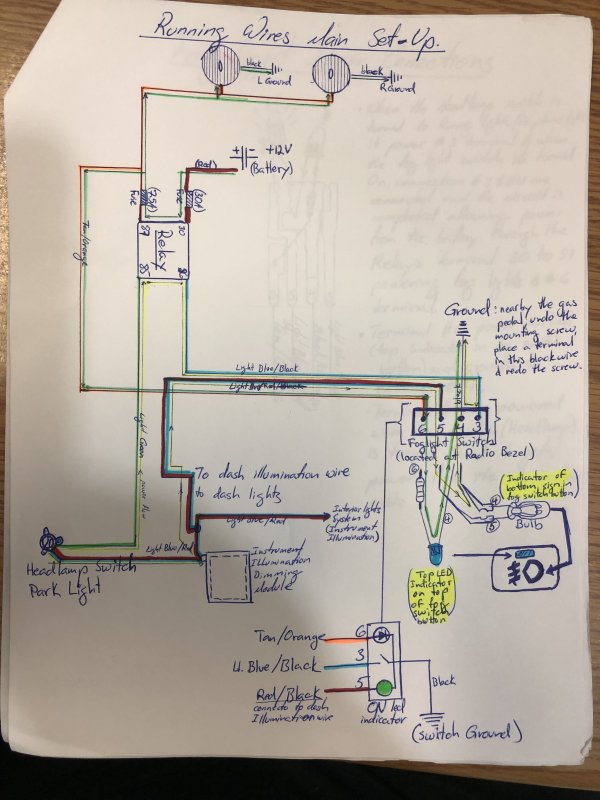 Running Wires Main Set-Up.
black
L Ground
black
R Ground
+ - +12V
(Battery)
(Red)
Fuse (7.5A)
Fuse (30A)
Tan/Orange
87 30
Relay
85 86
Ground: nearby the gas
pedal, undo the
mounting screw,
place a terminal
in this black wire
& redo the screw.
Light Blue/Black
black
6 5 4 3
Foglight Switch
(located at Radio Bezel)
Light Green
To dash illumination wire
to dash lights
Light Blue/Red
Interior lights
System
(Instrument
Illumination)
Light Blue/Red
Headlamp Switch
Park Light
Instrument
Illumination
Dimming
Module
6
4
4
6
Indicator of
bottom sign in
fog switch button)
Bulb
Top LED
Indicator
on top
of fog
switch
button
Tan/Orange 6
Lt. Blue/Black 3
Red/Black 5
connect to dash
Illumination wire
ON led
indicator
Black
(Switch Ground)